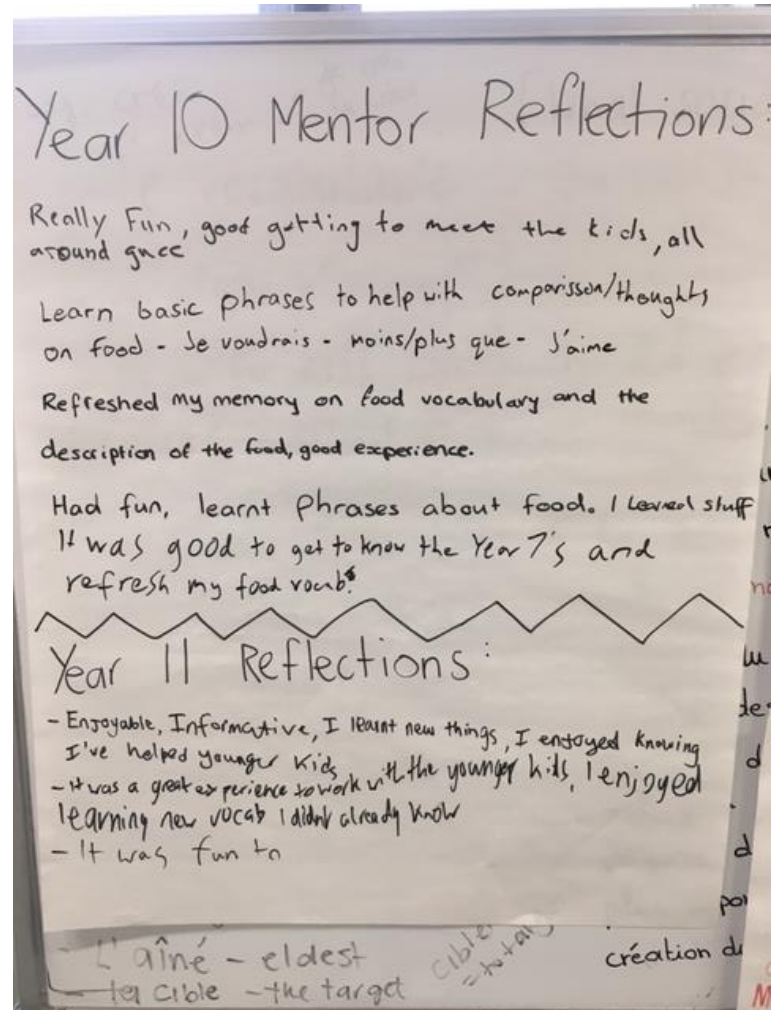 Year 10 Mentor Reflections:
Really Fun, good getting to meet the kids, all
around
Learn basic phrases to help with comparisson/thoughts
on food - Je voudrais - moins/plus que - J'aime
Refreshed my memory on food vocabulary and the
description of the food, good experience.
Had fun, learnt Phrases about food. I Learned stuff
It was good to get to know the Year 7's and
refresh my food vocab.
Year 11 Reflections:
- Enjoyable, Informative, I learnt new things, I enjoyed knowing
I've helped younger kids
- It was a great experience to work with the younger kids, I enjoyed
learning new vocab I didn't already know
- It was fun to
L'aîné - eldest
cible - the target
cibler
= to
création